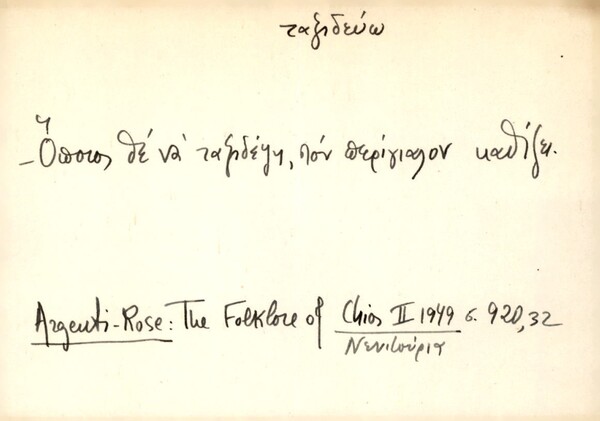 ταξιδεύω
- Ὅποιος θέ νά ταξιδέψη, στόν περίγιαλον καθίζει.
Argenti-Rose: The Folklore of Chios II 1949 σ. 920,32
Νενητούρια